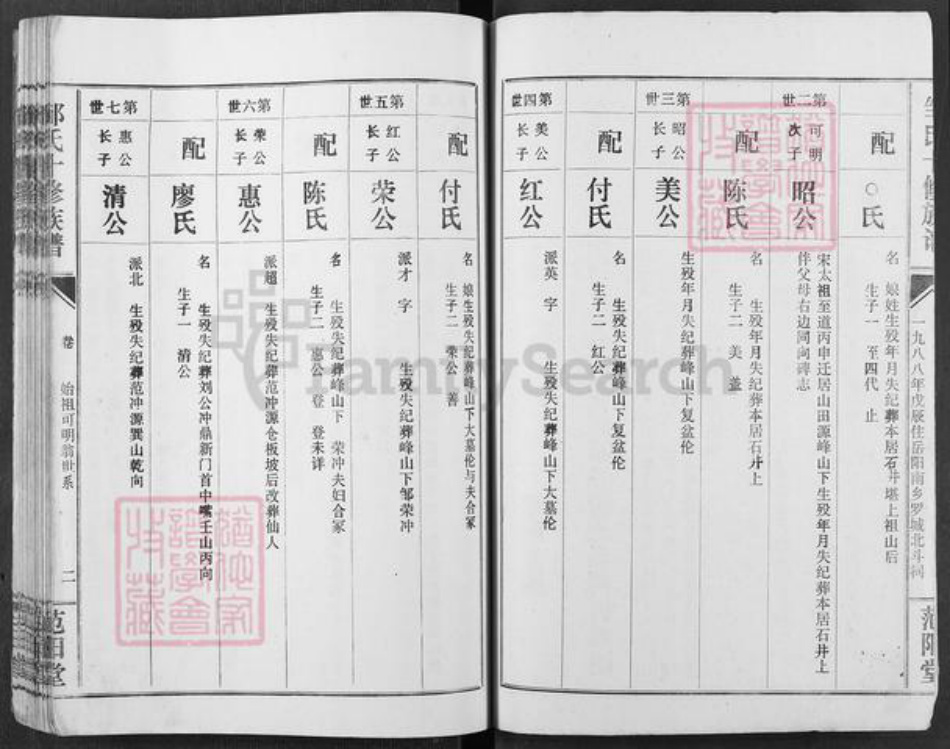 一九八八年戊辰住岳阳南乡罗城北斗祠
配
○氏
名 娘姓生殁年月失纪葬本居石井堪上祖山后
生子一 至四代 止
第二世
可明
次子
昭公
宋太祖至道丙申迁居山田源峰山下生殁年月失纪葬本居石井上
伴父母右边同向碑志
配
陈氏
名 生殁年月失纪葬本居石井上
生子二 美 盖
第三世
昭公
长子
美公
生殁年月失纪葬峰山下复盆伦
配
付氏
名 生殁失纪葬峰山下复盆伦
生子二 红公
第四世
美公
长子
红公
派英 字 生殁失纪葬峰山下大墓伦
配
付氏
名 娘生殁失纪葬峰山下大墓伦与夫合冢
生子二 荣公 善
第五世
红公
长子
荣公
派才 字 生殁失纪葬峰山下邹荣冲
配
陈氏
名 生殁失纪葬峰山下 荣冲夫妇合冢
生子二 惠公 登 登未详
第六世
荣公
长子
惠公
派超 生殁失纪葬范冲源仓板坡后改葬仙人
配
廖氏
名 生殁失纪葬刘公冲鼎新门首中嘴壬山丙向
生子一 清公
第七世
惠公
长子
清公
派北 生殁失纪葬范冲源巽山乾向
氏十修族谱
卷 始祖可明翁世系 二
范阳堂
FamilySearch